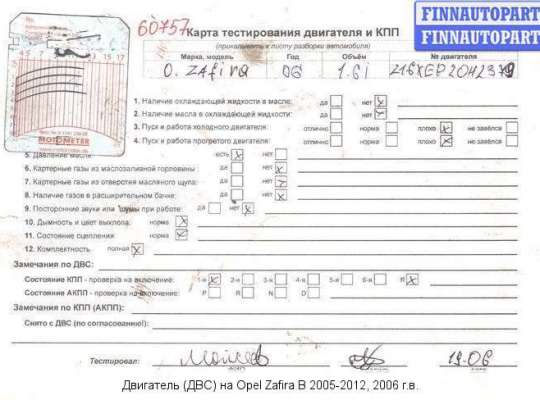 FINNAUTOPART
FINNAUTOPART
60757
Карта тестирования двигателя и КПП
(прикалывать к листу разборки автомобиля)
Марка, модель Год Объём № двигателя
O. Zafira 06 1.6i Z16XEP
1. Наличие охлаждающей жидкости в масле: да нет
2. Наличие масла в охлаждающей жидкости: да нет
3. Пуск и работа холодного двигателя: отлично норма плохо не завёлся
4. Пуск и работа прогретого двигателя: отлично норма плохо не завёлся
5. Давление масла: есть нет
6. Картерные газы из маслозаливной горловины: да нет
7. Картерные газы из отверстия масляного щупа: да нет
8. Наличие газов в расширительном бачке: да нет
9. Посторонние звуки или шумы при работе: да нет
10. Дымность и цвет выхлопа: норма
11. Состояние сцепления норма
12. Комплектность полная
Замечания по ДВС:
Состояние КПП - проверка на включение: 1-я 2-я 3-я 4-я 5-я 6-я R
Состояние АКПП - проверка на включение: P R N D
Замечания по КПП (АКПП):
Снято с ДВС (по согласованию!):
Тестировал: 19.06
MOTOMETER
Двигатель (ДВС) на Opel Zafira B 2005-2012, 2006 г.в.